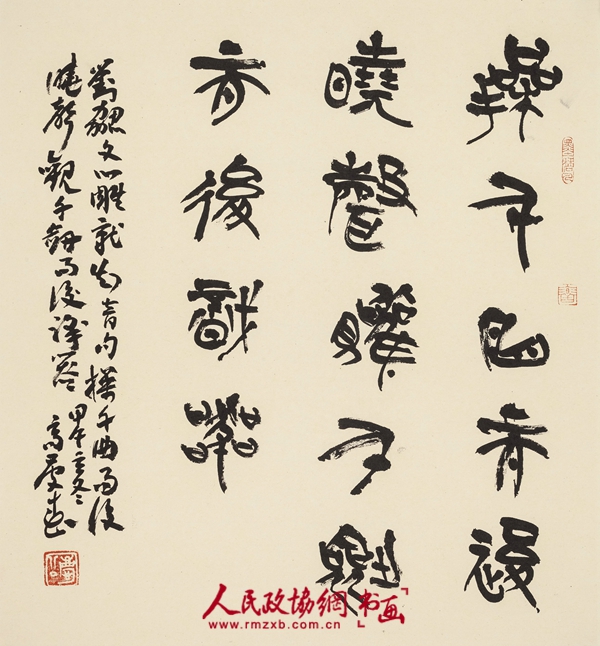 操千曲而後
曉聲觀千劍
而後識器
劉勰文心雕龍知音句操千曲而後
曉聲觀千劍而後識器
甲午冬
高慶春
人民政協網「书画」
www.rmzxb.com.cn